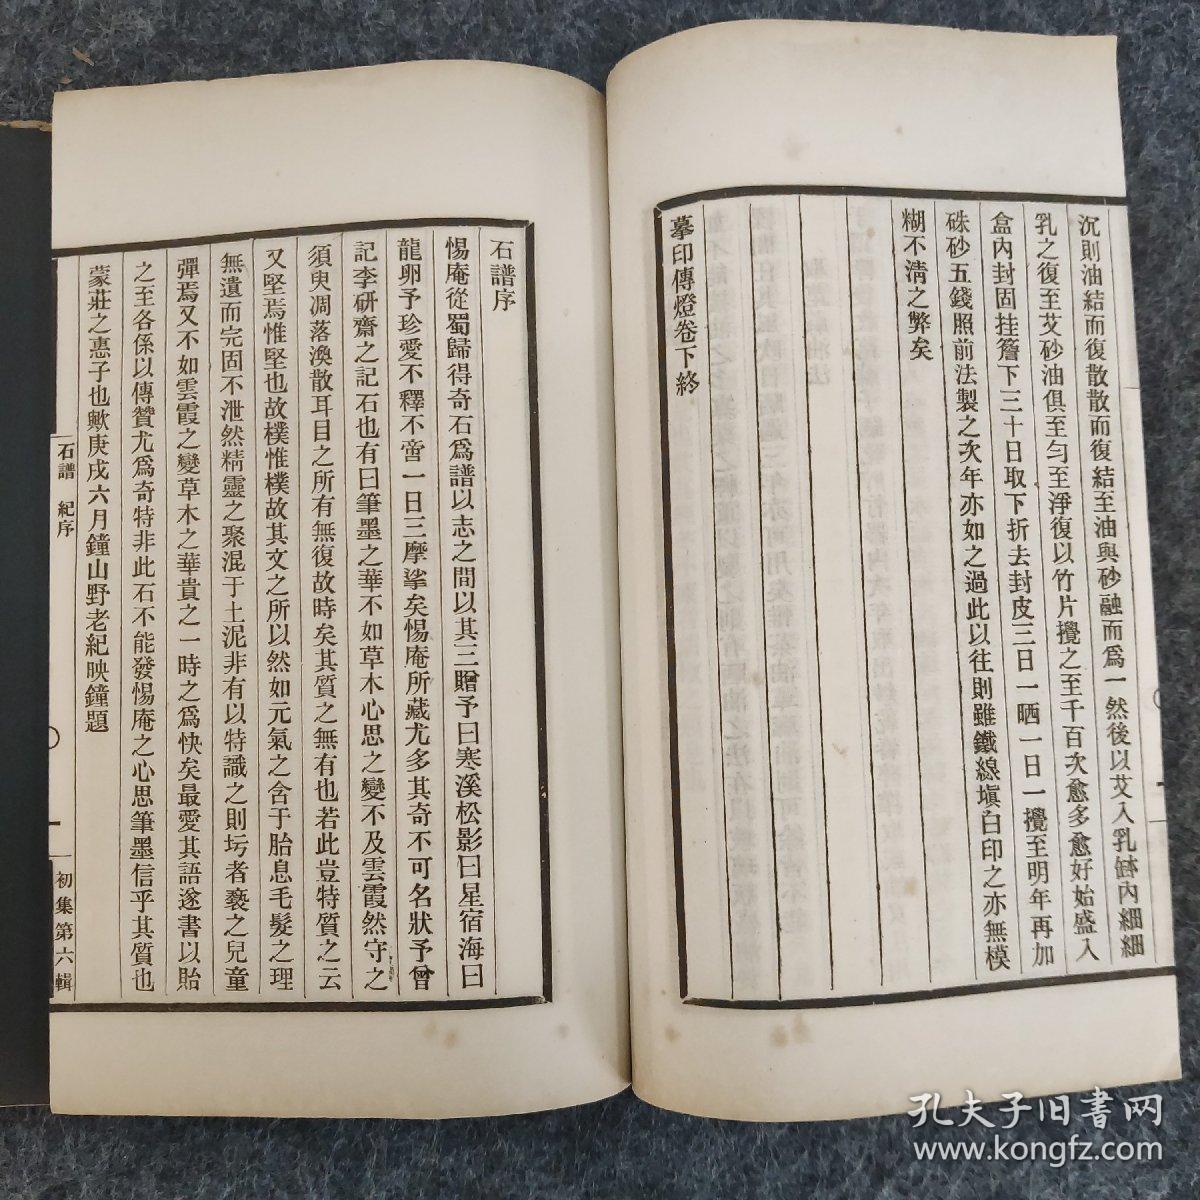 沉則油結而復散散而復結至油與砂融而爲一然後以艾入乳缽內細細
乳之復至艾砂油俱至勻至淨復以竹片攪之至千百次愈多愈好始盛入
盒內封固挂簷下三十日取下折去封皮三日一晒一日一攪至明年再加
硃砂五錢照前法製之次年亦如之過此以往則雖鐵線塡白印之亦無模
糊不清之弊矣
摹印傳燈卷下終
石譜序
惕庵從蜀歸得奇石爲譜以志之間以其三贈予曰寒溪松影曰星宿海曰
龍卵予珍愛不釋不啻一日三摩挲矣惕庵所藏尤多其奇不可名狀予曾
記李研齋之記石也有曰筆墨之華不如草木心思之變不及雲霞然守之
須臾凋落渙散耳目之所有無復故時矣其質之無有也若此豈特質之云
又堅焉惟堅也故樸惟樸故其文之所以然如元氣之含于胎息毛髮之理
無遺而完固不泄然精靈之聚混于土泥非有以特識之則圬者褻之兒童
彈焉又不如雲霞之變草木之華貴之一時之爲快矣最愛其語遂書以貽
之至各係以傳贊尤爲奇特非此石不能發惕庵之心思筆墨信乎其質也
蒙莊之惠子也歟庚戌六月鐘山野老紀映鐘題
石譜 紀序
初集第六輯
孔夫子旧书网
www.kongfz.com